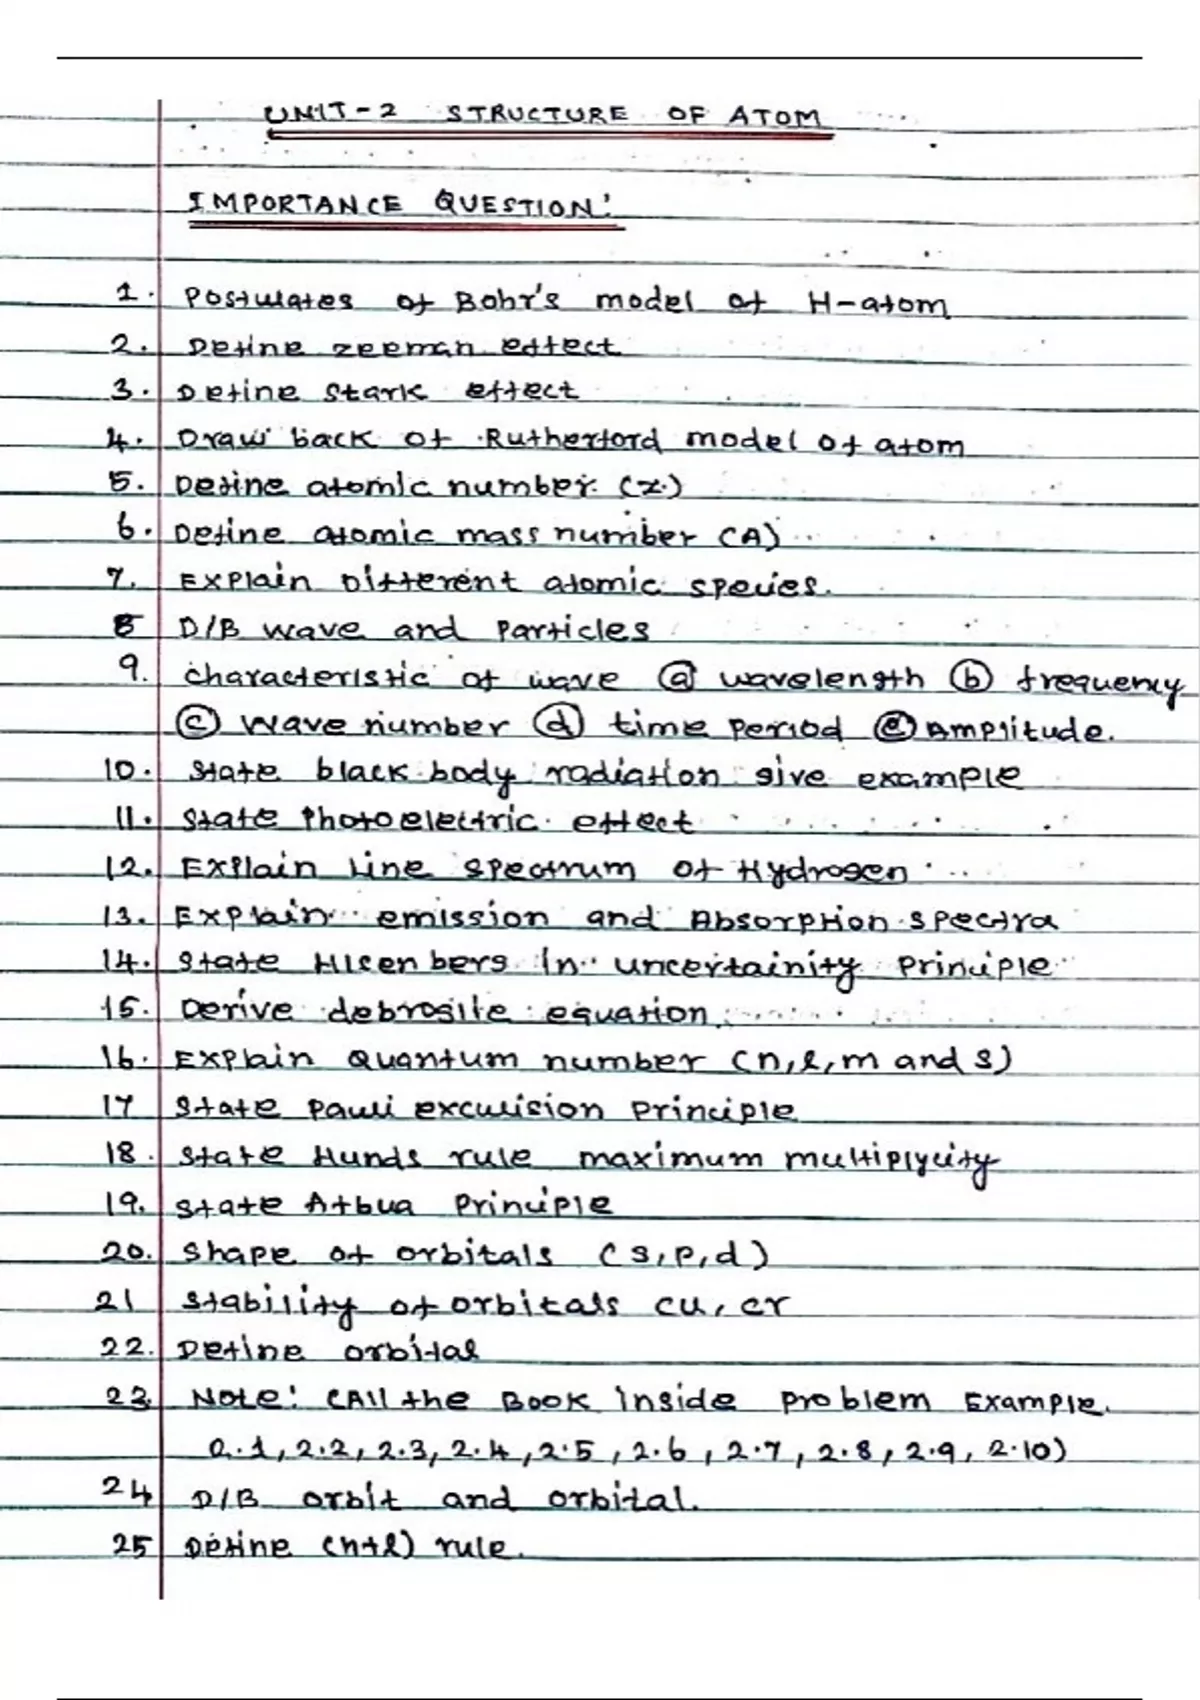 UNIT-2 STRUCTURE OF ATOM
IMPORTANCE QUESTION:
1. Postulates of Bohr's model of H-atom
2. Define zeeman effect
3. Define Stark effect
4. Draw back of Rutherford model of atom
5. Define atomic number (z)
6. Define atomic mass number (A)
7. Explain Different atomic species.
8 D/B wave and Particles
9. characteristic of wave (a) wavelength (b) frequency
(c) wave number (d) time period (e) Amplitude.
10. State black body radiation give example
11. State Photoelectric effect
12. Explain Line spectrum of Hydrogen
13. Explain emission and Absorption spectra
14. State Hisenbers In uncertainity principle
15. Derive debrogile equation
16. Explain Quantum number (n,l,m and s)
17 State Pauli exculision principle
18. State Hunds rule maximum multiplycity
19. State Afbua Principle
20. Shape of orbitals (s,p,d)
21 Stability of orbitals cu, cr
22. Define orbital
23. Note: (All the Book inside problem Example.
2.1, 2.2, 2.3, 2.4, 2.5, 2.6, 2.7, 2.8, 2.9, 2.10)
24 D/B orbit and orbital.
25 Define (n+l) rule.